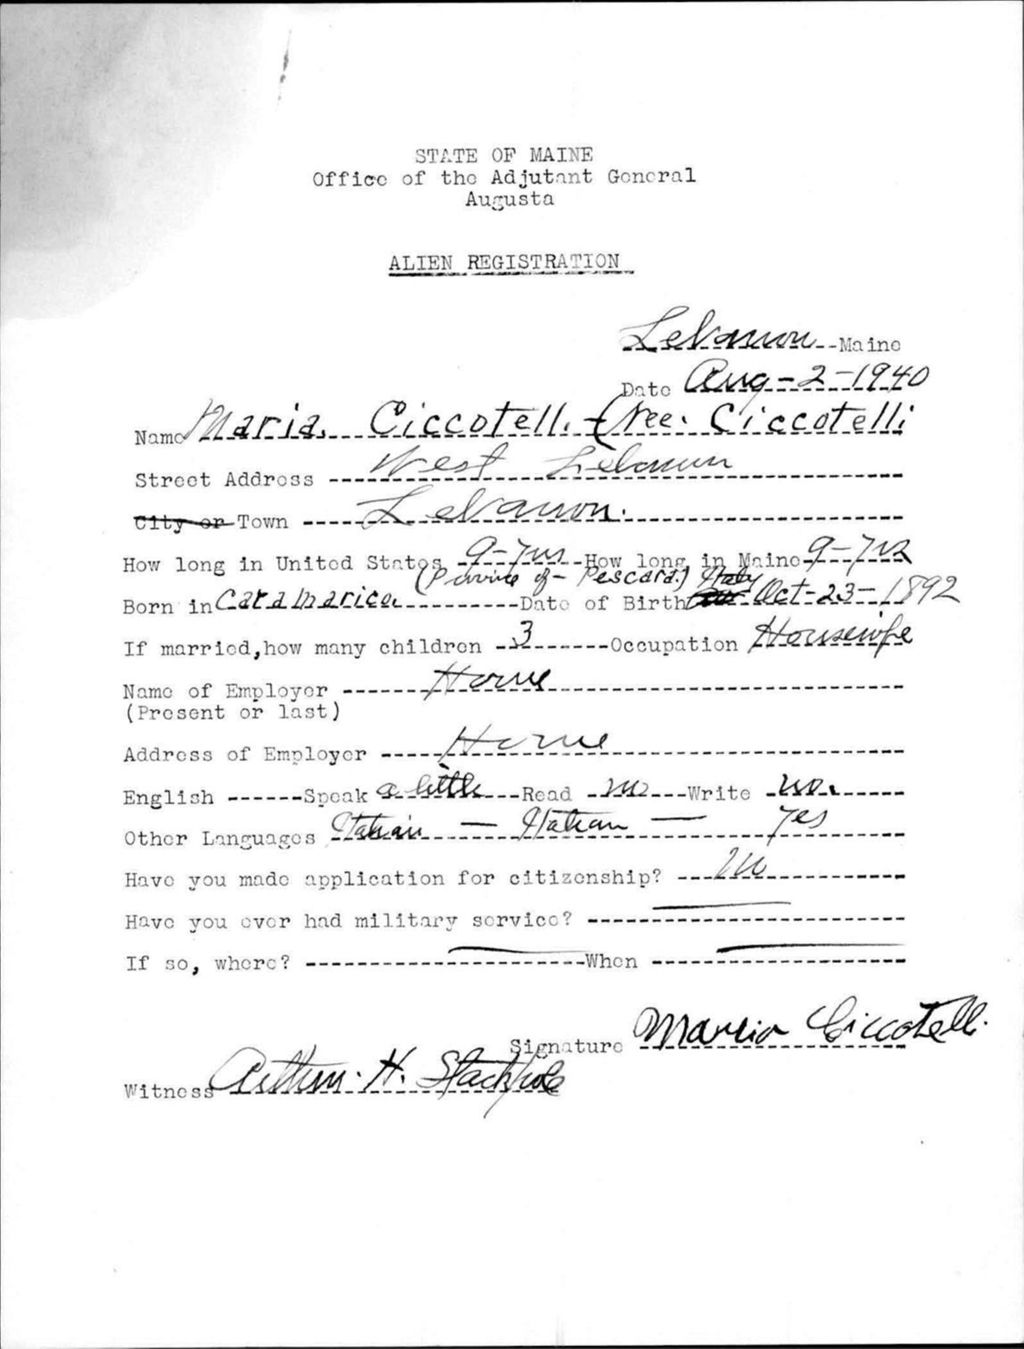 STATE OF MAINE
Office of the Adjutant General
Augusta
ALIEN REGISTRATION
Lebanon Maine
Date Aug-2-1940
Name Maria Ciccotelli (nee: Ciccotelli
Street Address West Lebanon
City or Town Lebanon.
How long in United States 9-yrs How long in Maine 9-yrs
(Province of - Pescara) Italy
Born in Caramanico Date of Birth Oct-23-1892
If married, how many children 3 Occupation Housewife
Name of Employer Home
(Present or last)
Address of Employer Home
English Speak a little Read no Write no.
Other Languages Italian — Italian — Yes
Have you made application for citizenship? No
Have you ever had military service?
If so, where? When
Signature Maria Ciccotelli
Witness Arthur H. Stackpole